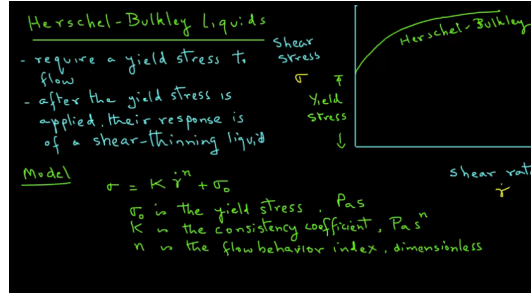 Herschel-Bulkley Liquids
- require a yield stress to
flow
- after the yield stress is
applied, their response is
of a shear-thinning liquid
shear
stress
σ
Yield
stress
Herschel-Bulkley
shear rat
γ̇
Model
σ = K γ̇ⁿ + σ₀
σ₀ is the yield stress, Pas
K is the consistency coefficient, Pasⁿ
n is the flow behavior index, dimensionless